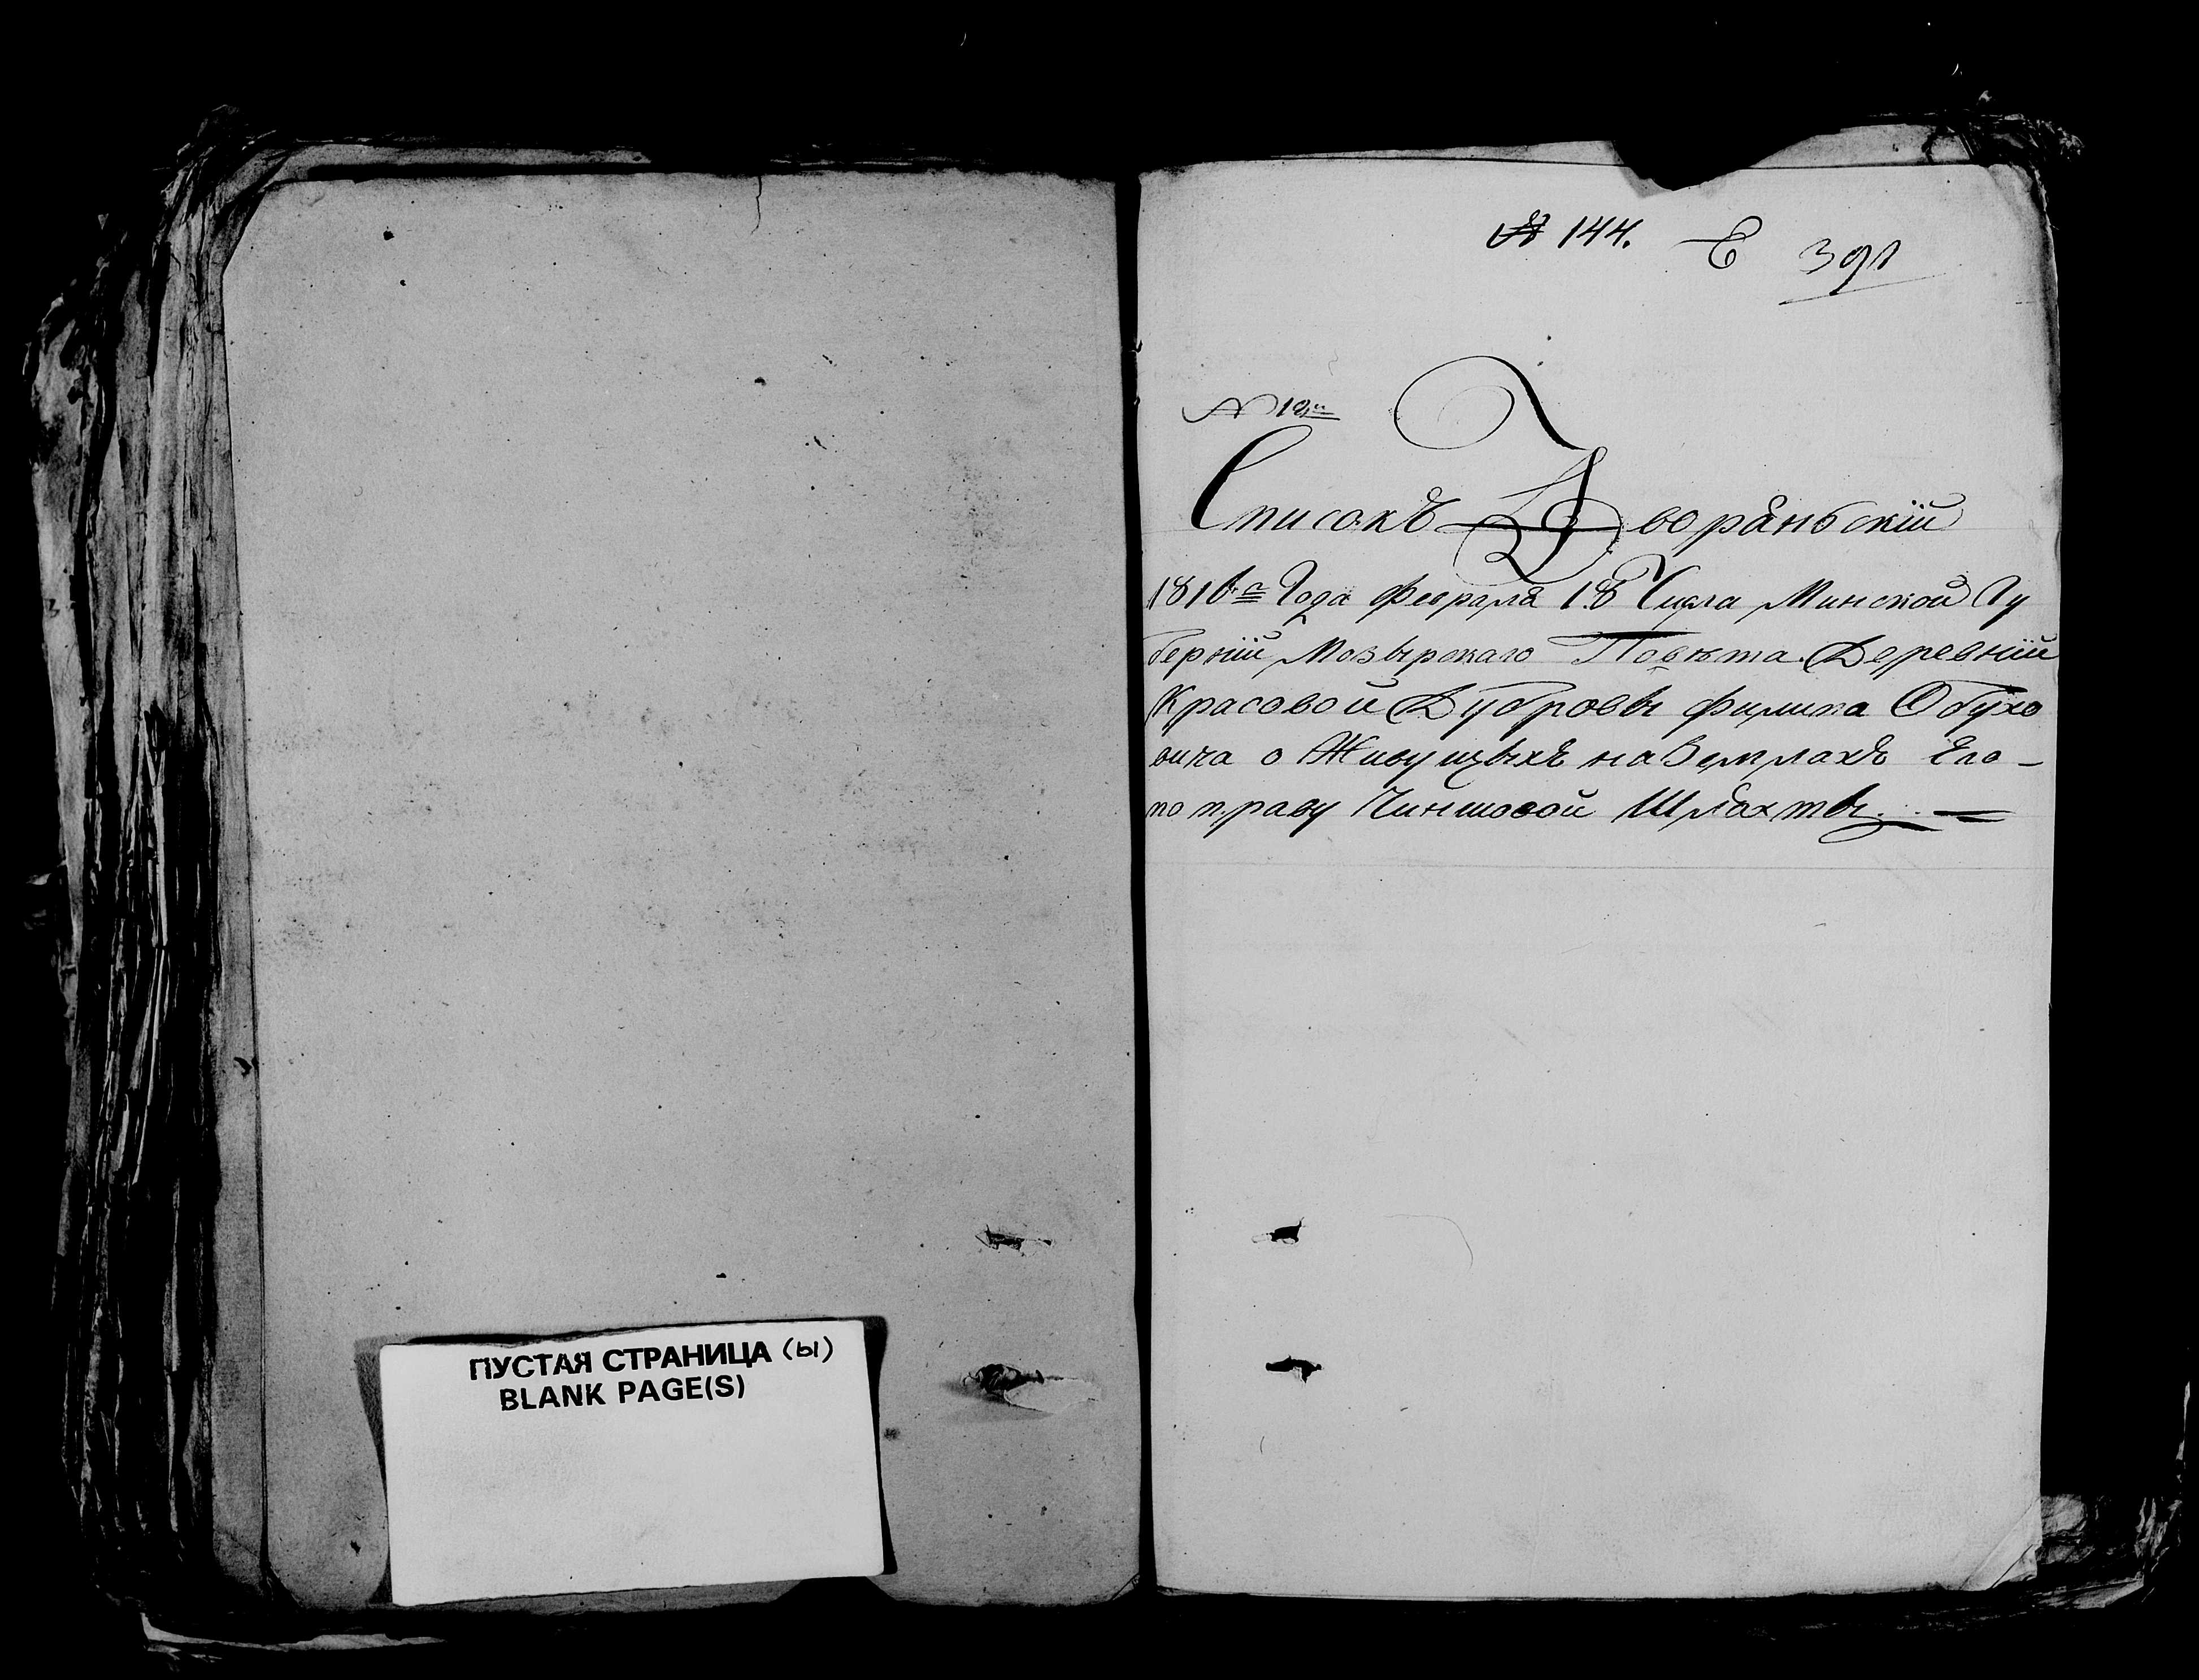 ПУСТАЯ СТРАНИЦА (ы)
BLANK PAGE(S)
№ 144. 391
№ 18й
Списокъ Дворяньскій
1816го Года Февраля 18 Числа Минской Гу
берніи Мозырскаго Повѣта Деревніи
Красовой Дубровы Филипа Обухо
вича о Живущыхъ на Земляхъ Его
по праву Чиншовой Шляхты.